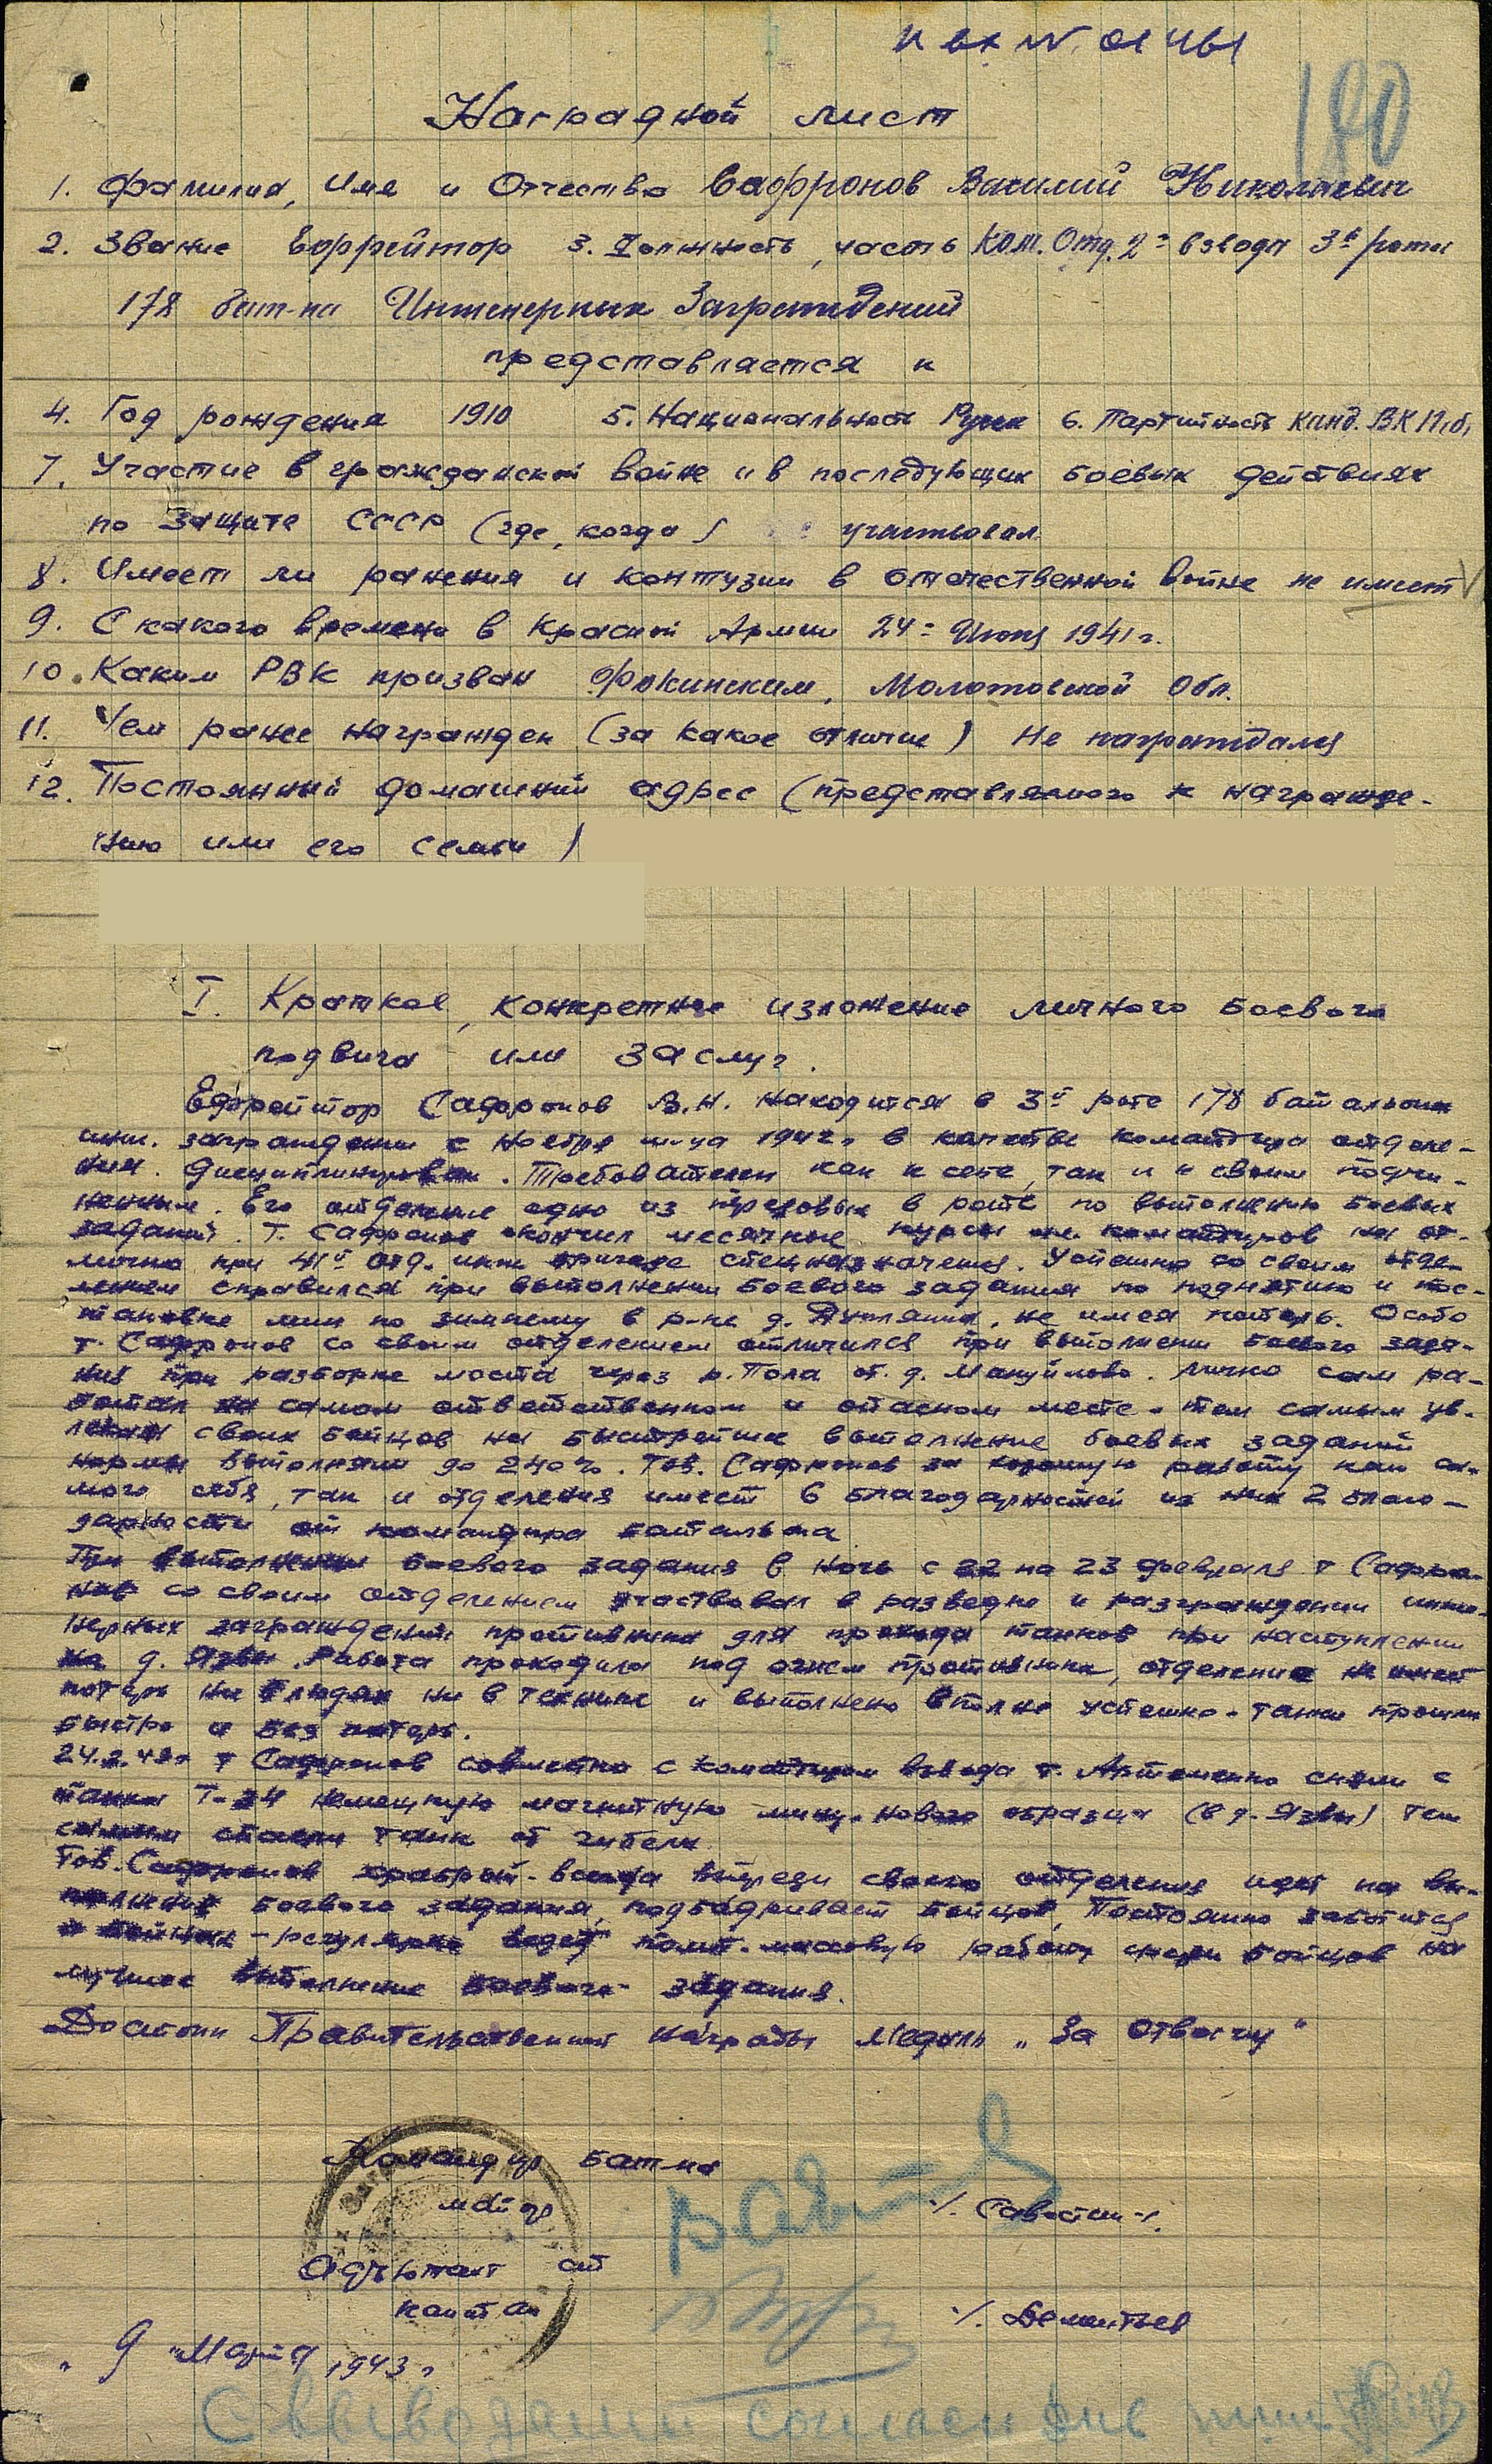 и вх N. 01461
180
Наградной лист
1. Фамилия, Имя и Отчество Сафронов Василий Николаевич
2. Звание Еффрейтор 3. Должность, часть Ком. Отд. 2го взвода 3й роты
178 бат-на Инженерных Заграждений
представляется к
4. Год рождения 1910 5. Национальность Русск 6. Партийность канд. ВКП(б)
7. Участие в гражданской войне и в последующих боевых действиях
по защите СССР (где, когда) участвовал
8. Имеет ли ранения и контузии в отечественной войне не имеет
9. С какого времени в Красной Армии 24го Июня 1941 г.
10. Каким РВК призван Фокинским, Молотовской Обл.
11. Чем ранее награжден (за какое отличие) Не награждался
12. Постоянный домашний адрес (представляемого к награжде-
нию или его семьи)
I. Краткое, конкретное изложение личного боевого
подвига или заслуг.
Ефрейтор Сафронов В.Н. находится в 3й роте 178 батальона
инж. заграждении с ноября м-ца 1942 г. в качестве командира отделе-
ния. Дисциплинирован. Требователен как к себе, так и к своим подчи-
ненным. Его отделение одно из передовых в роте по выполнению боевых
заданий. Т. Сафронов окончил месячные курсы мл. командиров на от-
лично при 41й отд. инж бригаде спецназначения. Успешно со своим отде-
лением справился при выполнении боевого задания по поднятию и пос-
тановке мин по зимнему в р-не д. не имея потерь. Особо
т. Сафронов со своим отделением отличился при выполнении боевого зада-
ния при разборке моста через р. Пола от. д. Мануйлово. Лично сам ра-
ботал на самом ответственном и опасном месте. тем самым ув-
лекая своих бойцов на быстрейшее выполнение боевых заданий
нормы выполняли до 240%. Тов. Сафронов за хорошую работу как са-
мого себя, так и отделения имеет 6 благодарностей из них 2 благо-
дарности от командира батальона
При выполнении боевого задания в ночь с 22 на 23 февраля т Сафро-
нов со своим отделением участвовал в разведке и разграждении инже-
нерных заграждений противника для прохода танков при наступлении
на д. Язвы. Работа проходила под огнем противника, отделение не имеет
потерь ни в людях ни в технике и выполнено вполне успешно - танки прошли
быстро и без потерь.
24.2.43 г т Сафронов совместно с командиром взвода т. Артеменко сняли с
танка Т-34 немецкую магнитную мину нового образца (в д. Язвы) тем
самым спасли танк от гибели
Тов. Сафронов храбрый - всегда впереди своего отделения идет на вы-
полнение боевого задания, подбадривает бойцов, Постоянно заботится
о бойцах - регулярно ведет полит-массовую работу среди бойцов на
лучшее выполнение боевого задания.
Достоин Правительственной награды Медаль „За Отвагу"
Командир бат-на
майор /. Савостин /.
Адъютант ст
капитан /. Дементьев
„9" Марта 1943 г
С выводами согласен